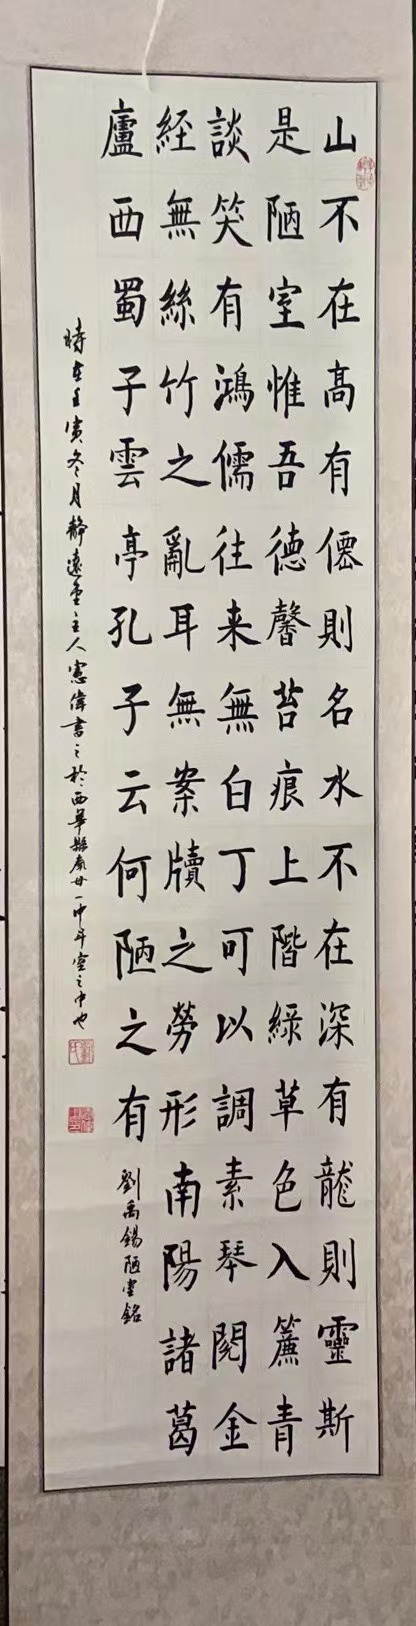 山不在高有僊則名水不在深有龍則靈斯
是陋室惟吾德馨苔痕上階綠草色入簾青
談笑有鴻儒往来無白丁可以調素琴閱金
経無絲竹之亂耳無案牘之勞形南陽諸葛
廬西蜀子雲亭孔子云何陋之有
劉禹錫陋室銘
時在壬寅冬月静遠堂主人憲偉書之於西華縣一中斗室之中也